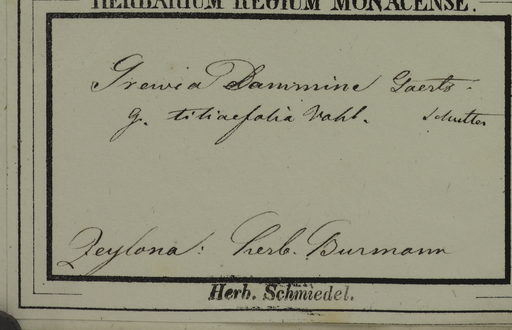 HERBARIUM REGIUM MONACENSE.
Grewia Dammine Gaertn.
G. tiliaefolia Vahl. Schultes
Zeylona: herb. Burmann
Herb. Schmiedel.